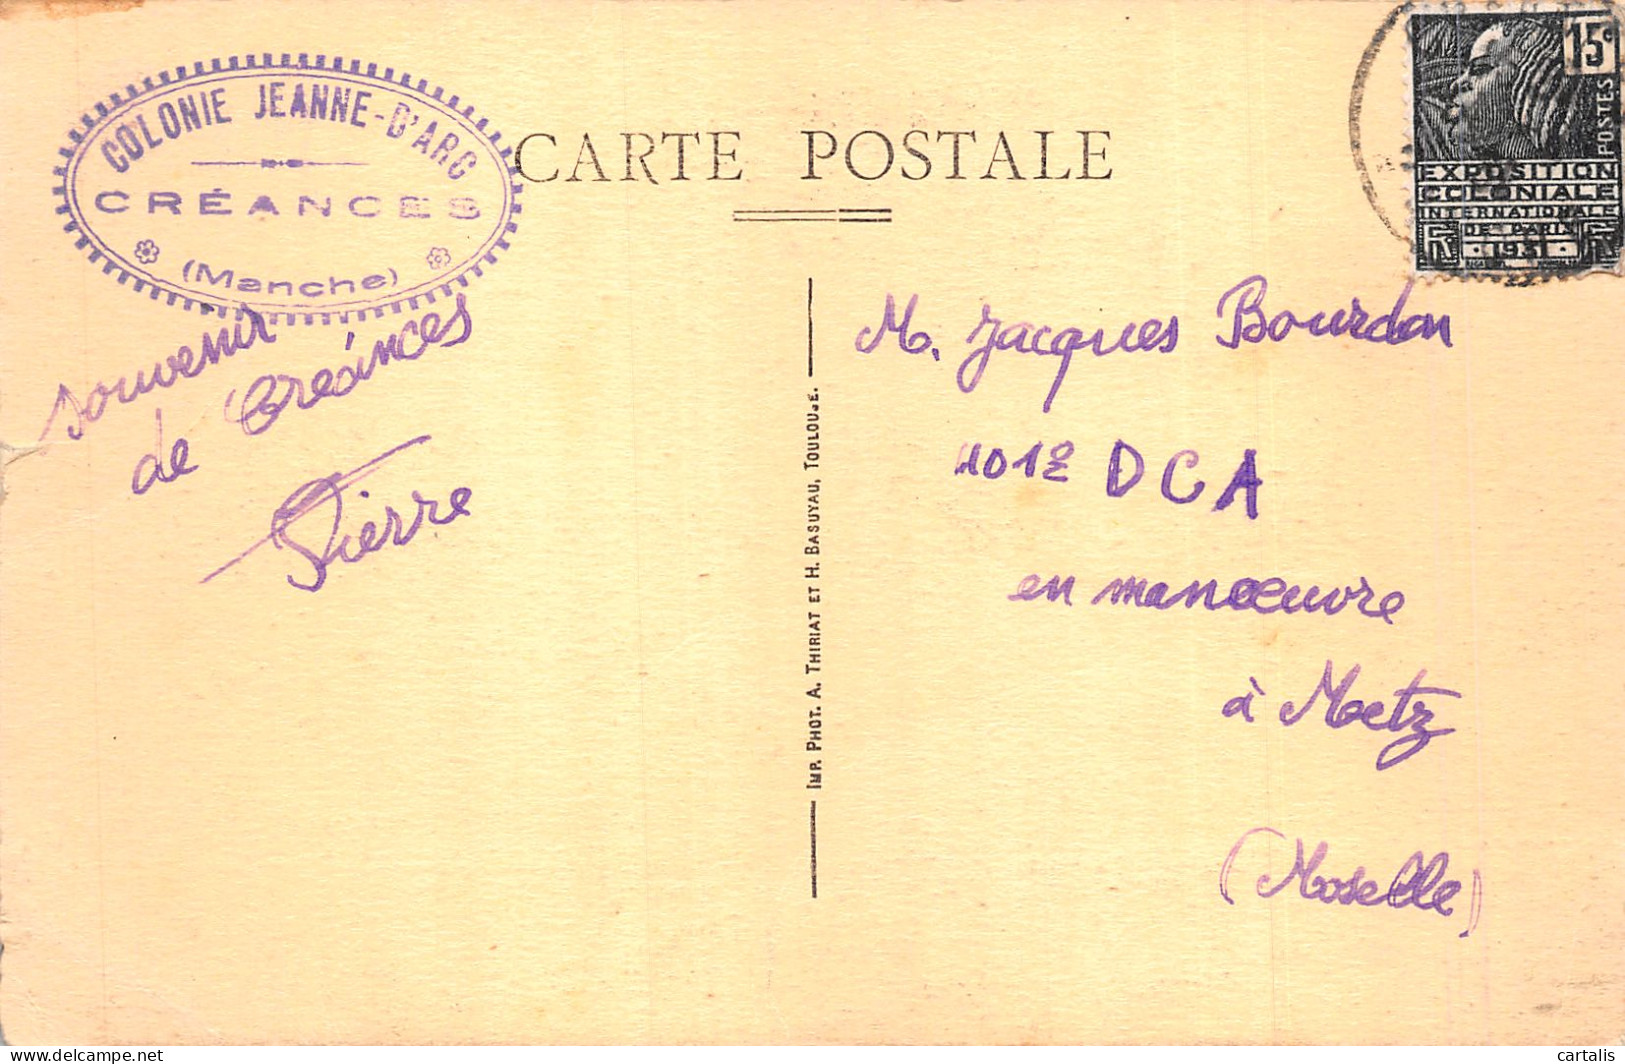 COLONIE JEANNE-D'ARC
CRÉANCES
(Manche)
CARTE POSTALE
15c
POSTES
EXPOSITION
COLONIALE
INTERNATIONALE
DE PARIS
1931
souvenir
de Créances
Pierre
IMP. PHOT. A. THIRIAT ET H. BASUYAU, TOULOUSE.
M. Jacques Bourdon
101e DCA
en manœuvre
à Metz
(Moselle)
delcampe.net
cartalis